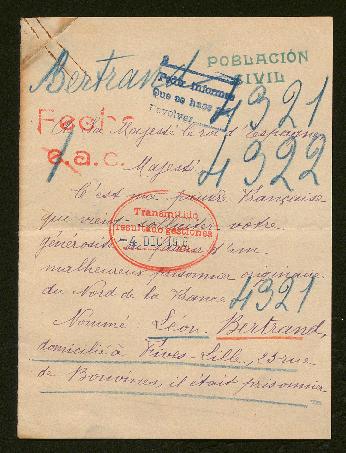 Bertrand
POBLACIÓN
CIVIL
Pedir informes
Que se hace
Devolver
4321
Fecha
a.a.c.
A Sa Majesté le roi d'Espagne
4322
Majesté
C'est une pauvre Française
qui vient solliciter votre
Transmitida
resultado gestiones
4 DIC 191
générosité en faveur d'un
malheureux prisonnier originaire
du Nord de la France
4321
Nommé Léon Bertrand,
domicilié à Fives-Lille, 25 rue
de Bouvines, il était prisonnier